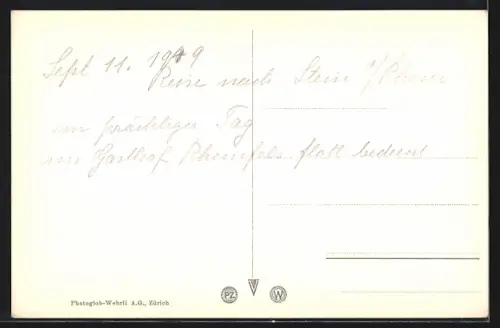 Sept 11. 1949
Reise nach Stein a/Rhein
ein prächtiger Tag
im Gasthof Rheinfels flott bedient
Photoglob-Wehrli A.G., Zürich
PZ W